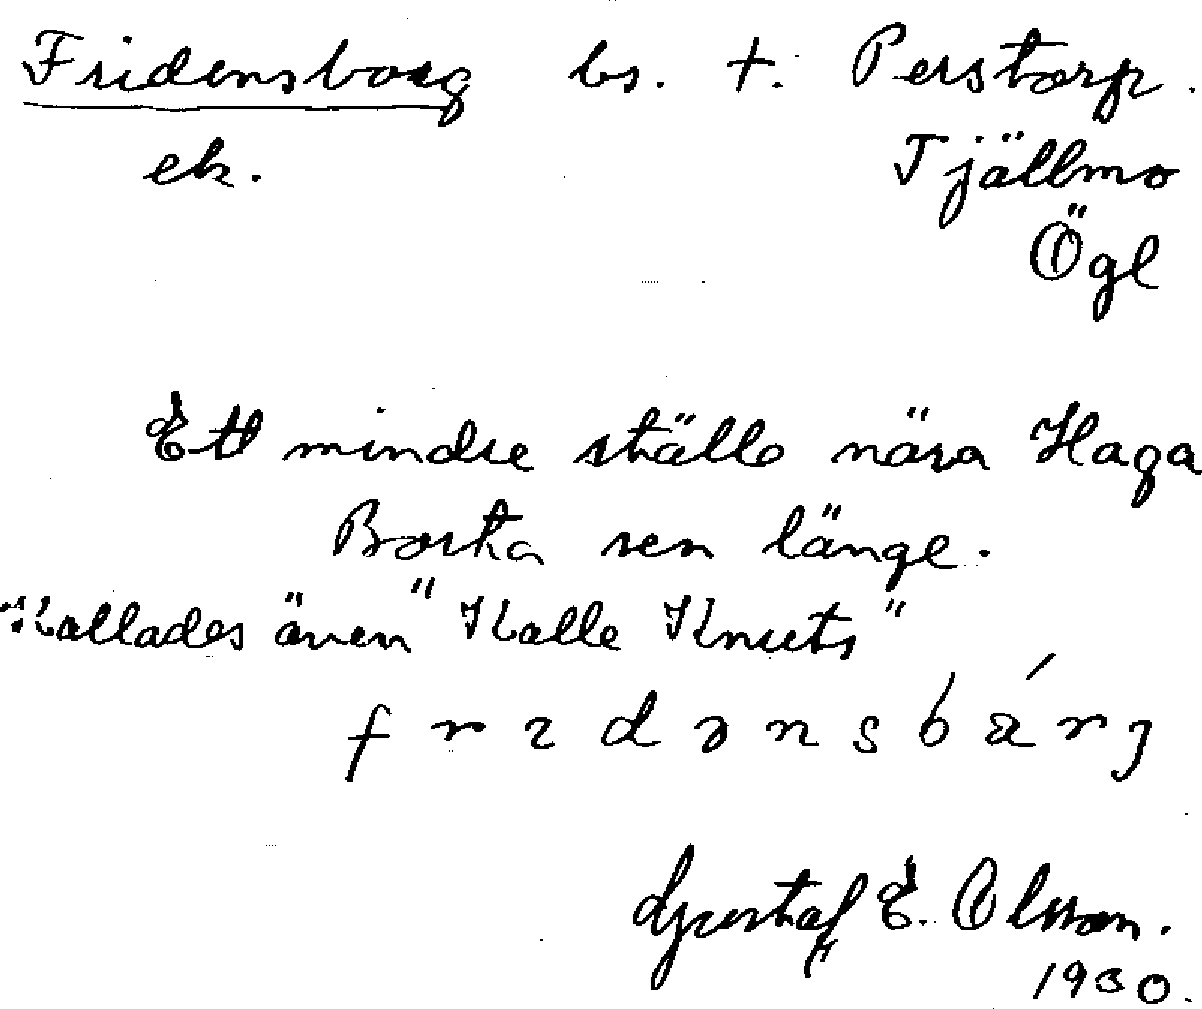 Fridensborg bs. t. Perstorp.
ek. Tjällmo
Ögl
Ett mindre ställe nära Haga
Borta sen länge.
Kallades även "Kalle Knuts"
fridənsbárj
Gustaf E. Olsson.
1930.